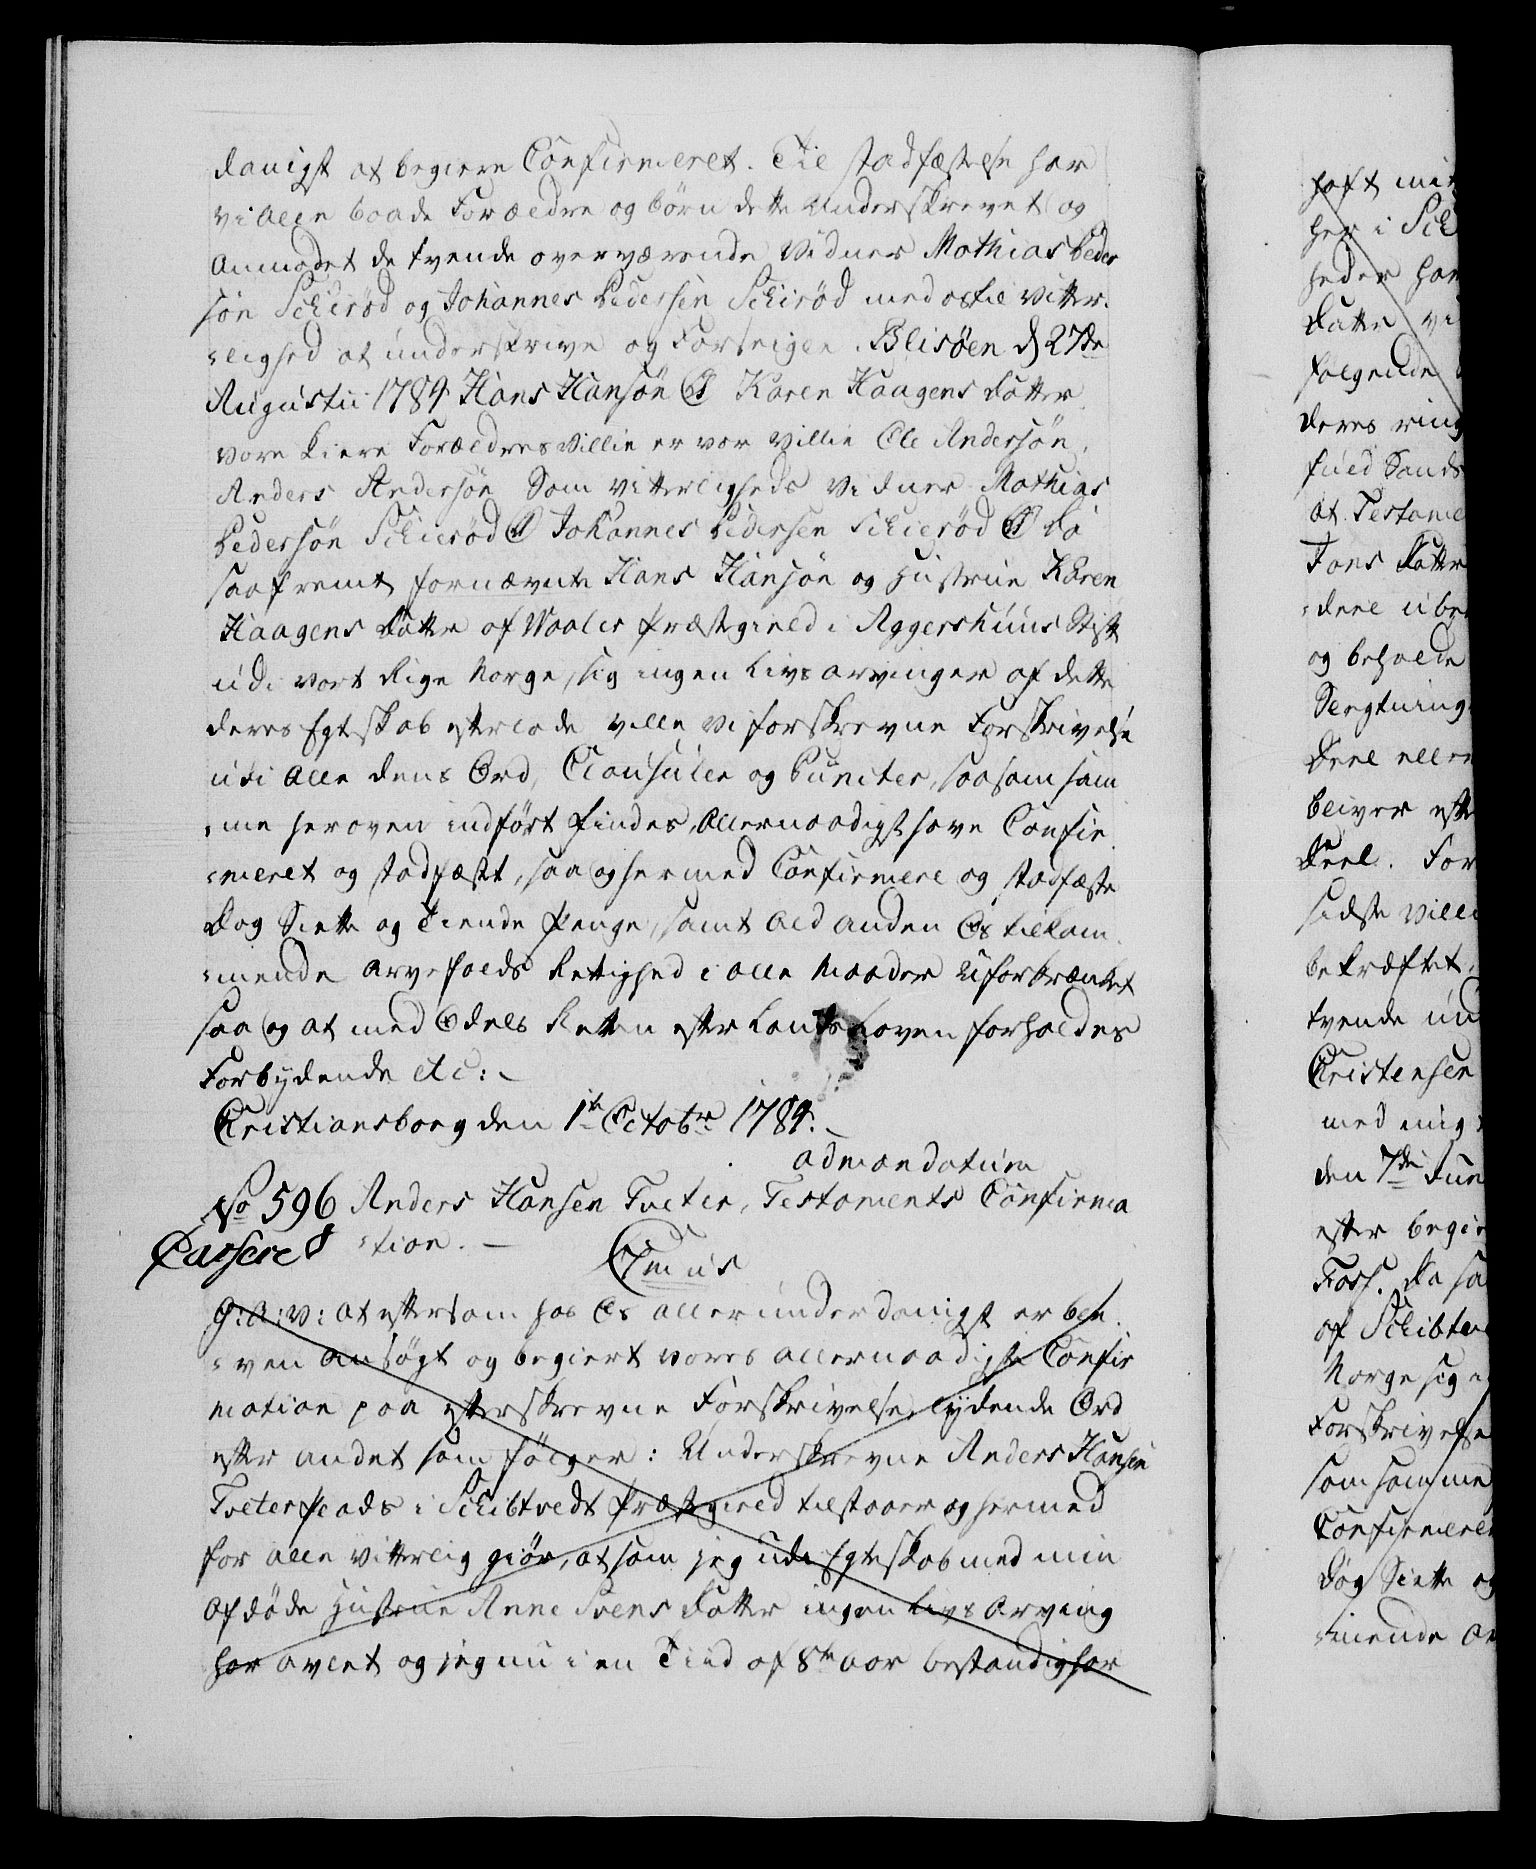 danigst at begiere Confirmeret. Til stadfæstelse har
vi alle baade Forældre og børn dette Underskrevet og
anmodet de tvende overværende Vidner Mathias Peder
søn Schirød og Johannes Pedersen Schirød med os til Vitter-
=lighed at underskrive og Forseigle. Blisöen d 27de
Augustii 1784 Hans Hansøn Karen Haagens datter
vore kiere Forældres Villie er vor Villie Ole Andersøn,
Anders Andersøn Som vitterligheds vidner Mathias
Pedersøn Schierød Johannes Pedersen Schierød Da
saafremt fornævnte Hans Hansøn og Hustrue Karen
Haagens datter af Waaler Præstegield i Aggershuus Stift
udi vort Rige Norge, sig ingen Livs arvinger af dette
deres Egteskab efterlade ville vi forskrevne Forskrivelse
udi alle dens Ord, Clausuler og Puncter, saasom sam
=me heroven indført findes, allernaadigst have Confir
=meret og stadfæst, saa og hermed Confirmere og stadfæste
Dog Siette og Tiende Penge, samt ald anden Os tilkom
=mende arvefalds Rettighed i alle Maader Uforkrænket
saa og at med Odels Retten efter Landsloven forholdes
Forbydende etc: -
Cristiansborg den 1te Octobr 1784. -
admandatum
No 596 Anders Hansen Tveter, Testaments Confirma
Cassere =tion. -
Cmus
G: A: V: at eftersom hos Os allerunderdanigst er ble
=ven ansøgt og begiert vores allernaadigste Confir
mation paa efterskrevne Forskrivelse, lydende Ord
efter andet som følger: Underskrevne Anders Hansen
Tveter Plads i Schibtvedt Præstegield tilstaar og hermed
for alle vitterlig giør, at som jeg udi Egteskab med min
afdøde Hustrue Anne Svens datter ingen livs Arving
har avlet og jeg nu i en Tiid af 8te aar bestandig har
haft mi
her i Sch
heder ha
datter vi
følgende
deres ring
fued Sands
at Testame
Jons datter
=deel ube
og beholde
deel eller
bliver efter
deel. For
sidste Villi
bekræftet,
tvende und
Cristensen
med mig
den 7de Jun
efter begie
Foss. Da sa
af Schibtve
Norge sig
Forskrivelse
som samme
Confirmere
Dog Siette og
=mende ar